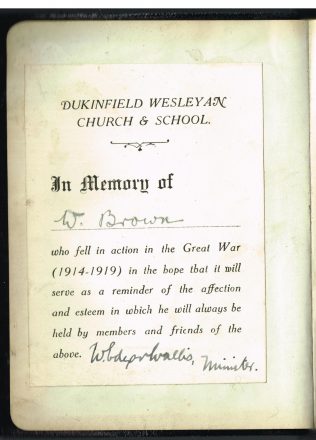 DUKINFIELD WESLEYAN
CHURCH & SCHOOL.
In Memory of
W. Brown
who fell in action in the Great War
(1914-1919) in the hope that it will
serve as a reminder of the affection
and esteem in which he will always be
held by members and friends of the
above. Wallis, Minister.